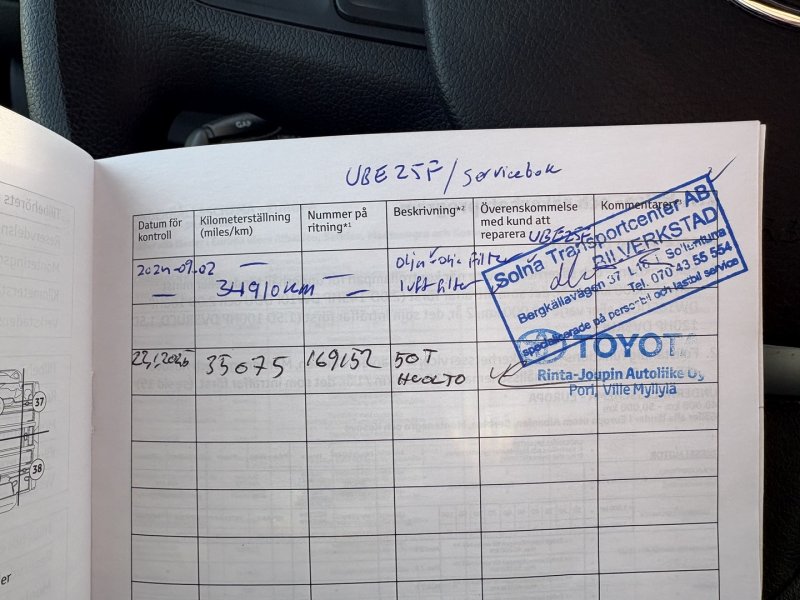 UBE25F/Servicebok
Datum för kontroll
Kilometerställning (miles/km)
Nummer på ritning*1
Beskrivning*2
Överenskommelse med kund att reparera
Kommentarer
UBE25F
2024-09.02
Olja + olja filter
— 34910 km —
luftfilter
Solna Transportcenter AB
BILVERKSTAD
Bergkällavägen 37 L 16 i Sollentuna
Tel. 070 43 55 554
specialicerade på personbil och lastbil service
35075
169152
50T
HUOLTO
TOYOT
Rinta-Joupin Autoliike Oy
Pori, Ville Myllylä
37
38
er